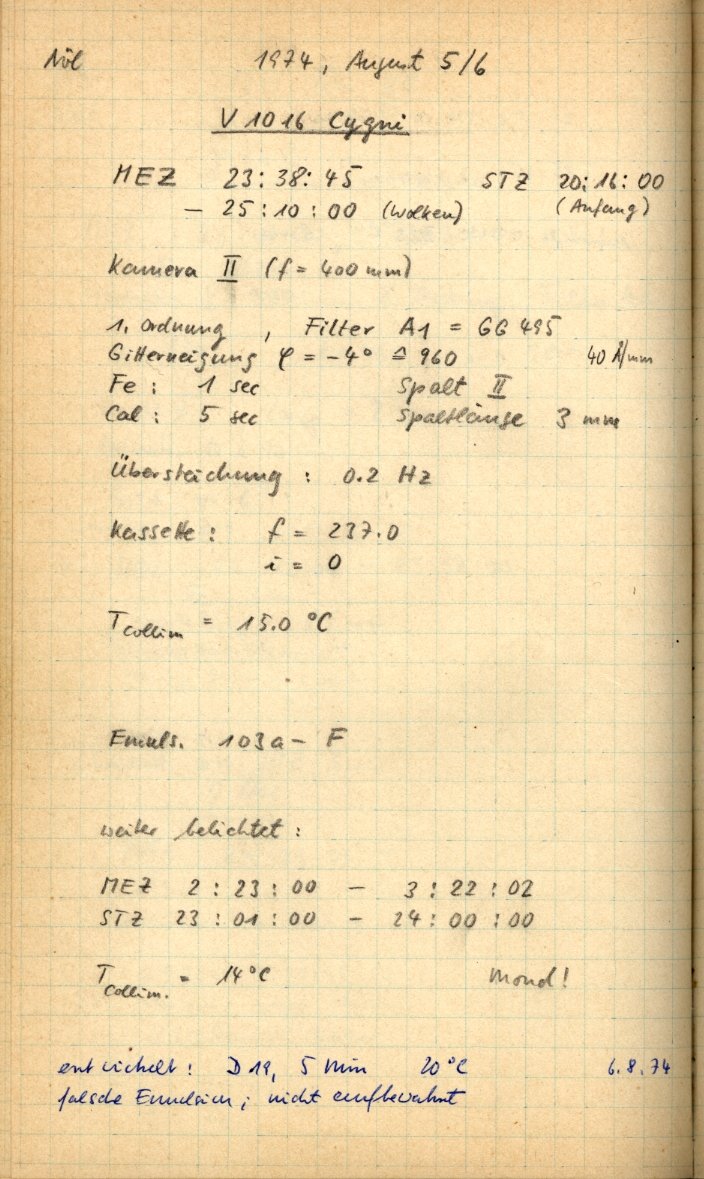 Nöl 1974, August 5/6
V 1016 Cygni
MEZ 23:38:45 STZ 20:16:00
– 25:10:00 (Wolken) (Anfang)
Kamera II (f = 400 mm)
1. Ordnung , Filter A1 = GG 495
Gitterneigung φ = -4° ≙ 960 40 Å/mm
Fe : 1 sec Spalt II
Cal : 5 sec Spaltlänge 3 mm
Überstreichung : 0.2 Hz
Kassette : f = 237.0
i = 0
T collim = 15.0 °C
Emuls. 103a – F
weiter belichtet :
MEZ 2 : 23 : 00 – 3 : 22 : 02
STZ 23 : 01 : 00 – 24 : 00 : 00
T collim. = 14°C Mond!
entwickelt : D 19, 5 Min 20°C 6.8.74
falsche Emulsion ; nicht aufbewahrt